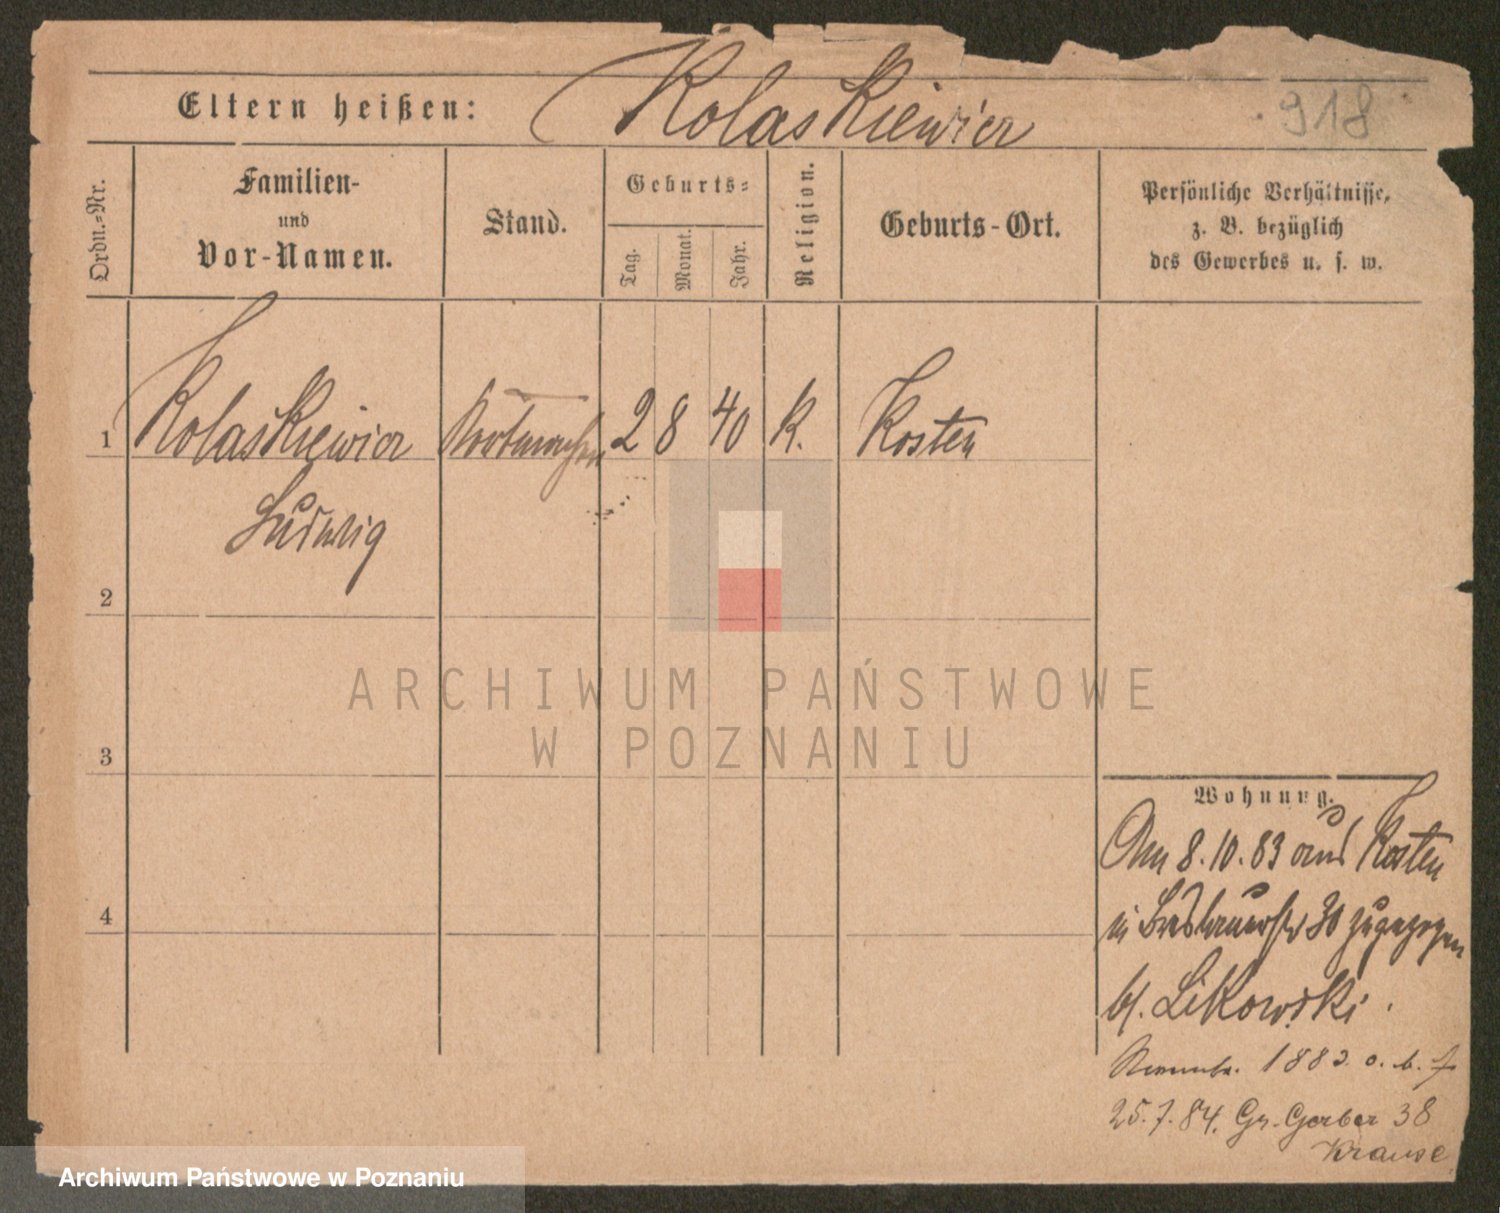 Eltern heißen: Kolaskiewicz
918
Ordn.-Nr.
Familien-
und
Vor-Namen.
Stand.
Geburts-
Tag.
Monat.
Jahr.
Religion.
Geburts-Ort.
Persönliche Verhältnisse,
z. B. bezüglich
des Gewerbes u. s. w.
1 Kolaskiewicz 2 8 40 K. Kosten
Ludwig
2
3
4
ARCHIWUM PAŃSTWOWE
W POZNANIU
Wohnung.
Am 8.10.83 aus Kosten
in Breslauerstr 30 zugezogen
bei Likowski.
1883
25.7.84. Gr. Gerber 38
Krause
Archiwum Państwowe w Poznaniu